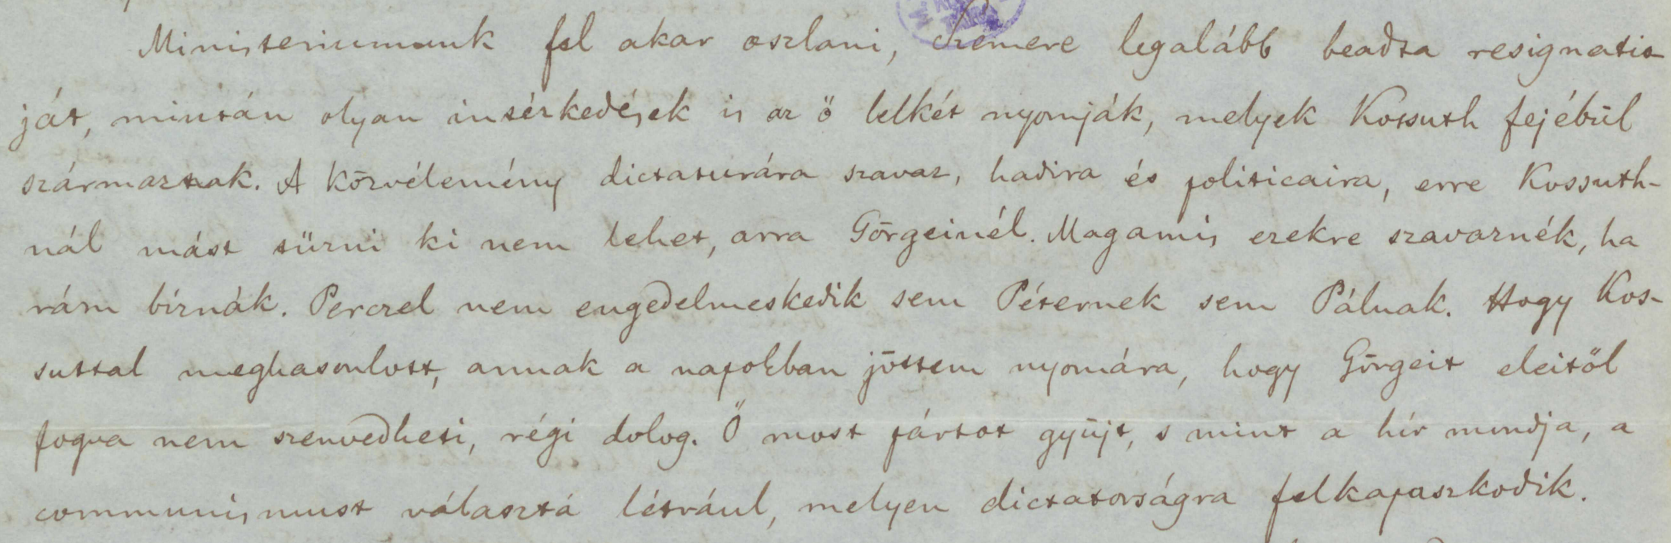 Ministeriumunk fel akar oszlani, Szemere legalább beadta resignatio-
ját, miután olyan intézkedések is az ő lelkét nyomják, melyek Kossuth fejébűl
származtak. A közvélemény dictaturára szavaz, hadira és politicaira, erre Kossuth-
nál mást tűzni ki nem lehet, arra Görgeinél. Magamis ezekre szavaznék, ha
rám bíznák. Perczel nem engedelmeskedik sem Péternek sem Pálnak. Hogy Kos-
suttal meghasonlott, annak a napokban jöttem nyomára, hogy Görgeit eleitől
fogva nem szenvedheti, régi dolog. Ő most pártot gyűjt, s mint a hír mondja, a
communismust választá létrául, melyen dictatorságra felkapaszkodik.